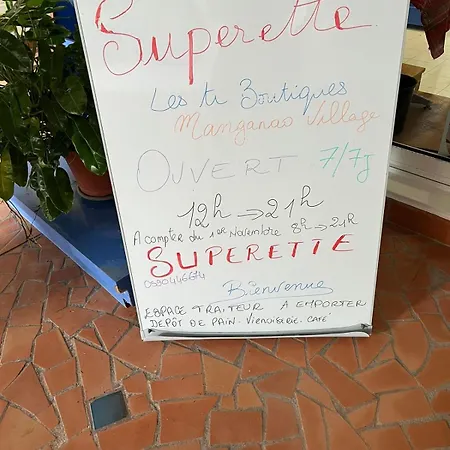 Superette
Les ti Boutiques
Manganao Village
OUVERT 7/7j
12h → 21h
A compter du 1er Novembre 8h → 21h
SUPERETTE
Bienvenue
ESPACE TRAITEUR A EMPORTER
DEPÔT DE PAIN. VIENOISERIE. CAFÉ